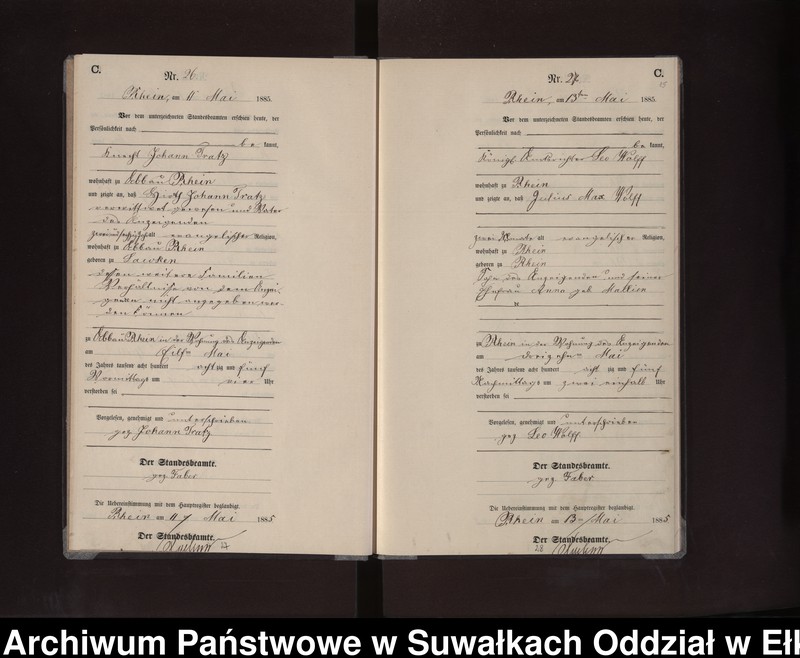 C.
Nr. 26
Rhein, am 11 Mai 1885.
Vor dem unterzeichneten Standesbeamten erschien heute, der
Persönlichkeit nach
be kannt,
Knecht Johann Tratz
wohnhaft zu Abbau Rhein
und zeigte an, daß Johann Tratz
verwittwet gewesen und Vater
des Anzeigenden
alt evangelischer Religion,
wohnhaft zu Abbau Rhein
geboren zu
dessen weitere Familien
Verhältnisse von dem Anzei-
genden nicht angegeben wer-
den können
zu Abbau Rhein in der Wohnung des Anzeigenden
am Mai
des Jahres tausend acht hundert acht zig und fünf
Vormittags um vier Uhr
verstorben sei
Vorgelesen, genehmigt und unterschrieben
gez Johann Tratz
Der Standesbeamte.
gez Faber
Die Uebereinstimmung mit dem Hauptregister beglaubigt.
Rhein am Mai 1885
Der Standesbeamte.
27
C.
Nr. 27
Rhein, am 13ten Mai 1885.
Vor dem unterzeichneten Standesbeamten erschien heute, der
Persönlichkeit nach
be kannt,
Königl Amtsrichter Leo Wolff
wohnhaft zu Rhein
und zeigte an, daß Julius Max Wolff
zwei Monate alt evangelischer Religion,
wohnhaft zu Rhein
geboren zu Rhein
Sohn des Anzeigenden und seiner
Ehefrau Anna geb
zu Rhein in der Wohnung des Anzeigenden
am dreizehn Mai
des Jahres tausend acht hundert acht zig und fünf
Nachmittags um zwei einhalb Uhr
verstorben sei
Vorgelesen, genehmigt und unterschrieben
gez Leo Wolff
Der Standesbeamte.
gez Faber
Die Uebereinstimmung mit dem Hauptregister beglaubigt.
Rhein am 13 Mai 1885
Der Standesbeamte.
28
Archiwum Państwowe w Suwałkach Oddział w Ełk